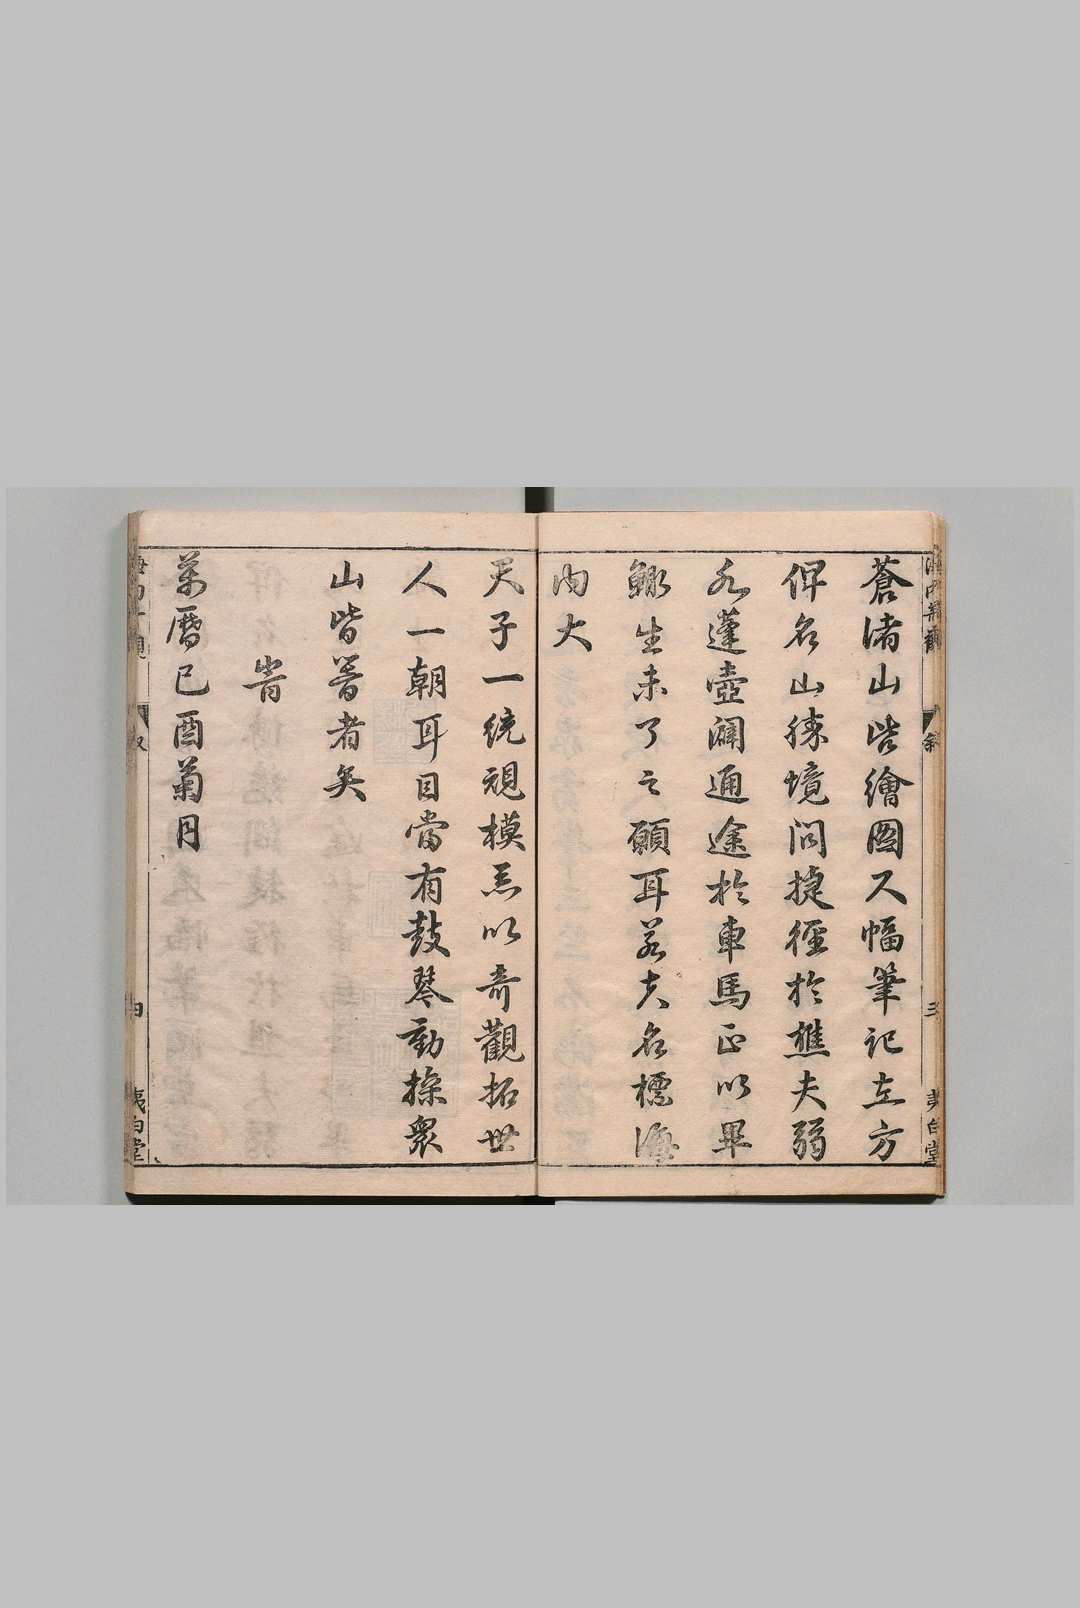 海內奇觀　敘　三　夷白堂
蒼諸山皆繪圖尺幅筆記左方
俾名山勝境問捷徑於樵夫弱
水蓬壺闢通途於車馬正以畢
鯫生未了之願耳若夫名標海
內大
天子一統規模以奇觀拓世
人一朝耳目當有鼓琴動操衆
山皆響者矣
旹
萬曆己酉菊月
海內奇觀　叙　四　夷白堂